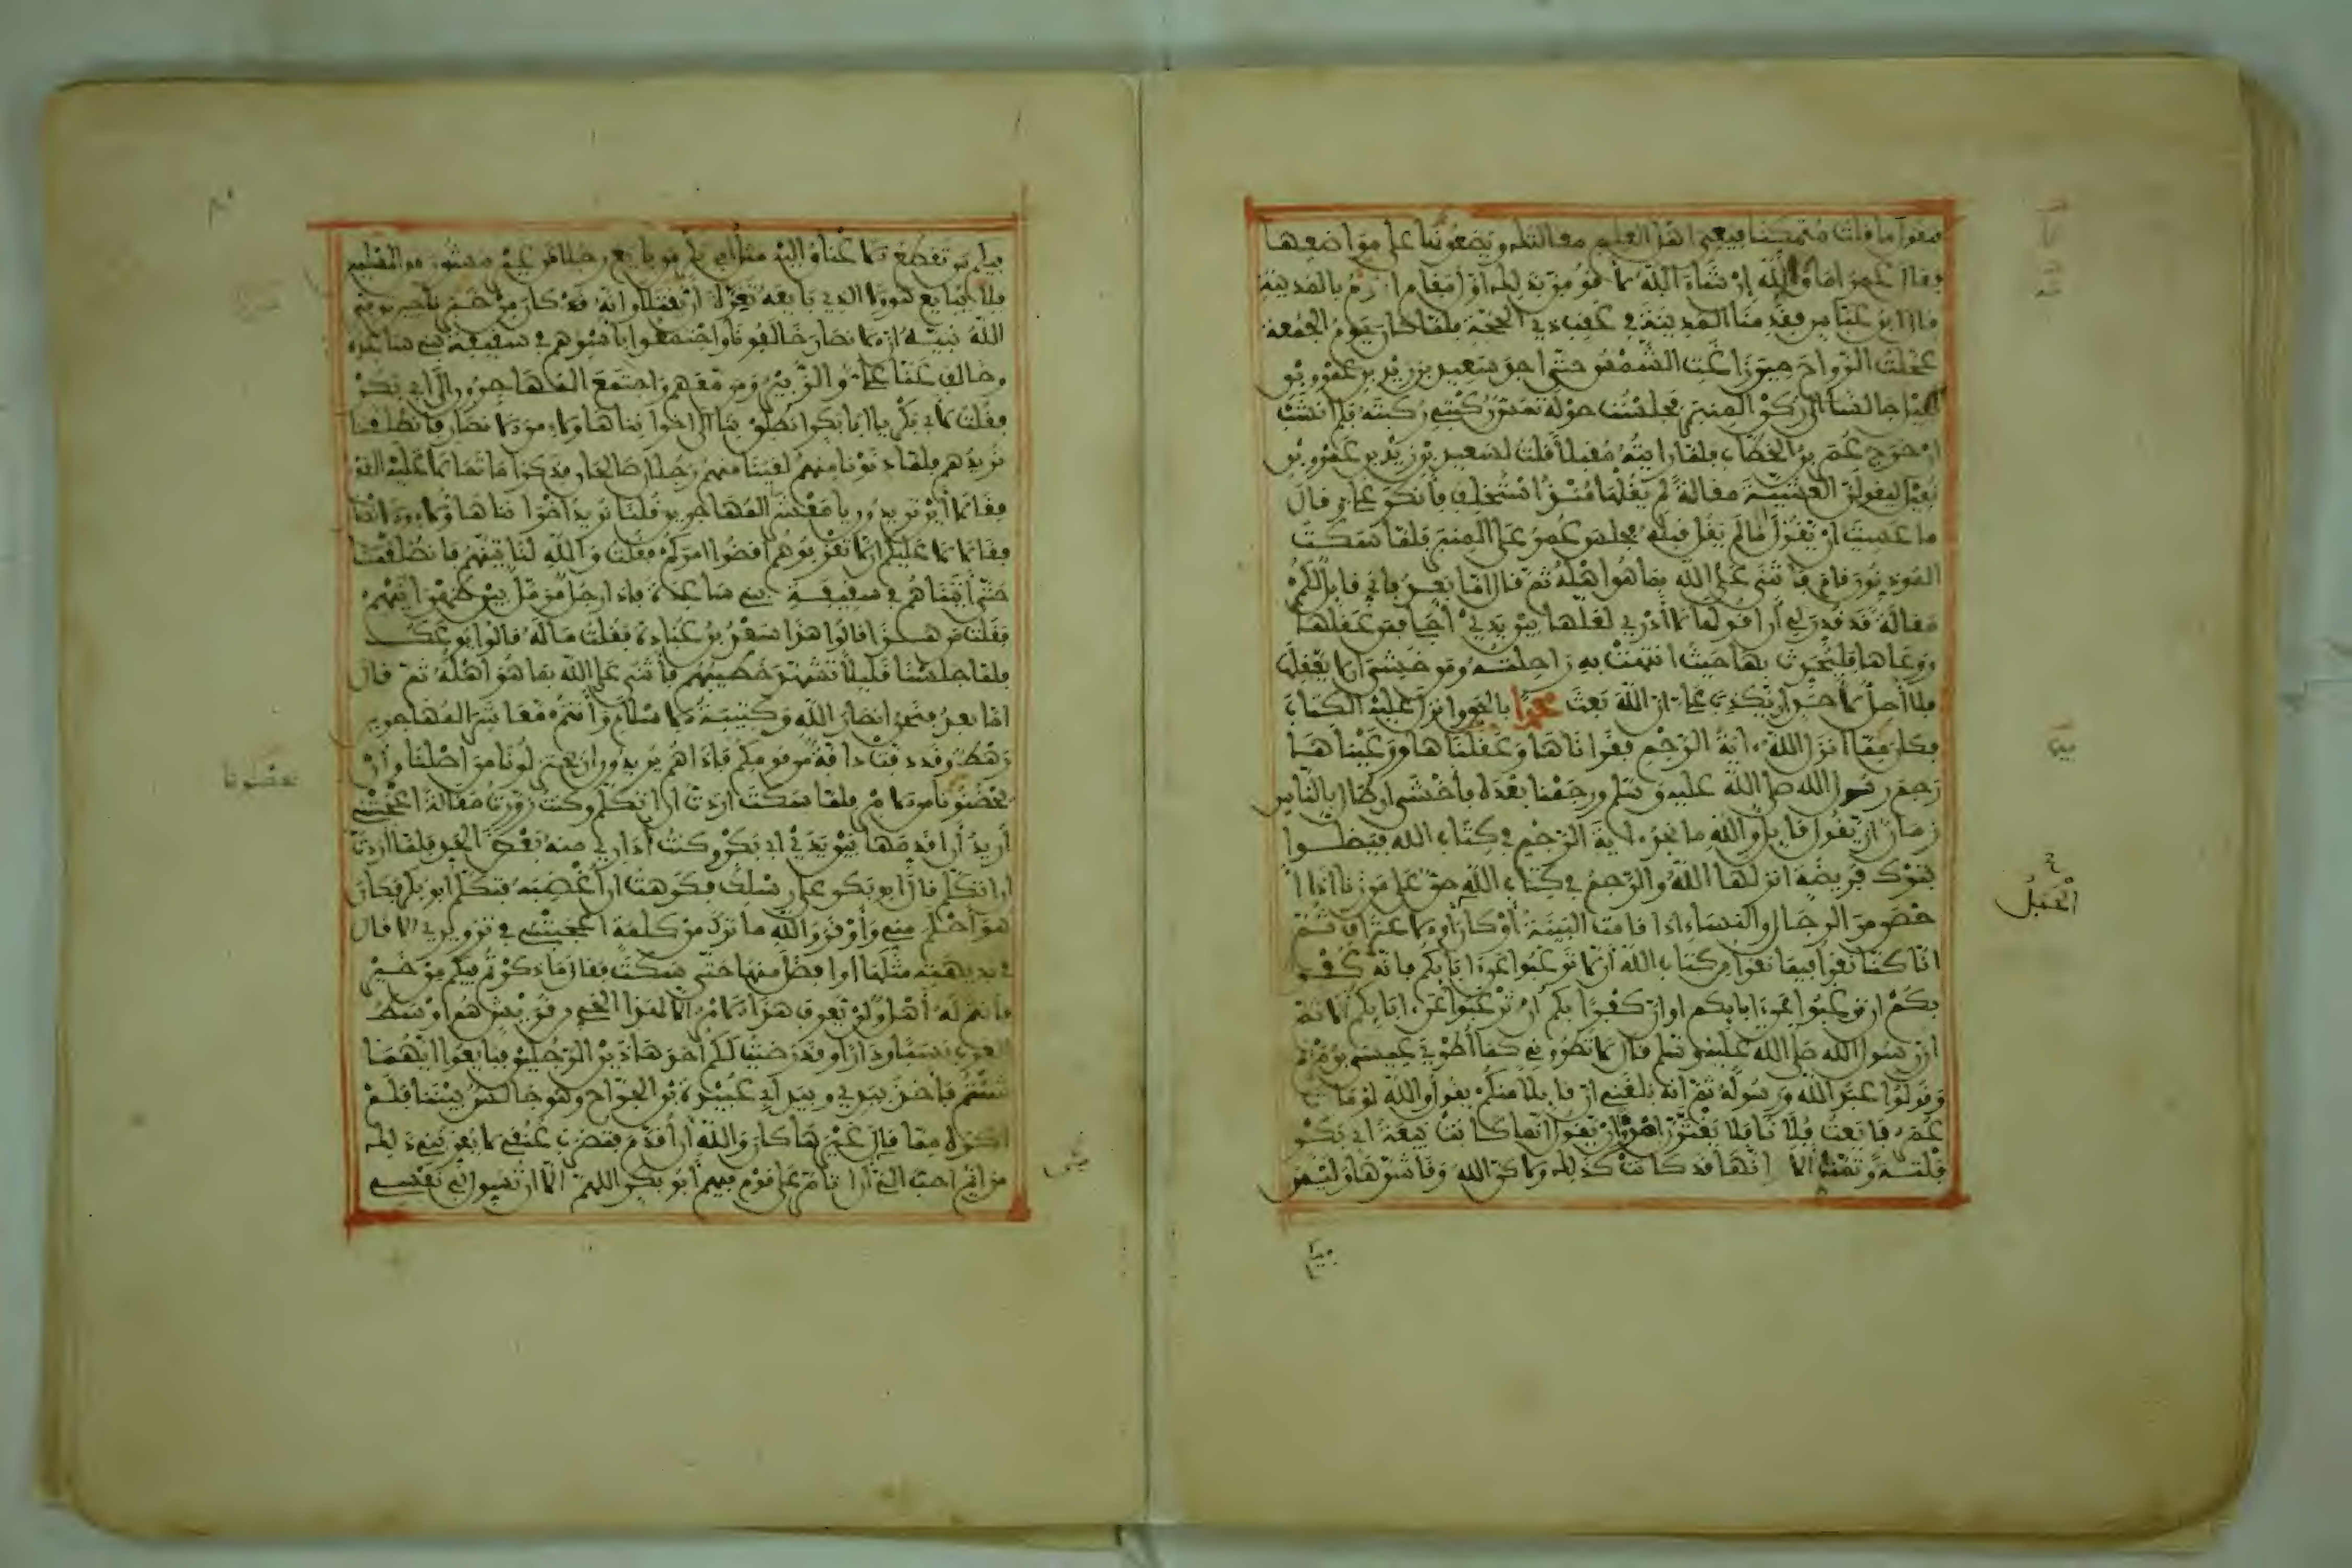 فتقول ما قلت متمكنا فيعي اهل العلم مقالتك ويضعونها على مواضعها
فقال عمر اما والله إن شاء الله لأقومن بذلك أول مقام أقوم بالمدينة
قال ابن عباس فقدمنا المدينة في عقب ذي الحجة فلما كان يوم الجمعة
عجلت الرواح حين زاغت الشمس حتى أجد سعيد بن زيد بن عمرو بن
نفيل جالسا إلى ركن المنبر فجلست حوله تمس ركبتي ركبته فلم أنشب
أن خرج عمر بن الخطاب فلما رأيته مقبلا قلت لسعيد بن زيد بن عمرو بن
نفيل ليقولن العشية مقالة لم يقلها منذ استخلف فأنكر علي وقال
ما عسيت أن يقول ما لم يقل قبله فجلس عمر على المنبر فلما سكت
المؤذنون قام فأثنى على الله بما هو أهله ثم قال أما بعد فإني قائل لكم
مقالة قد قدر لي أن أقولها لا أدري لعلها بين يدي أجلي فمن عقلها
ووعاها فليحدث بها حيث انتهت به راحلته ومن خشي أن لا يعقلها
فلا أحل لأحد أن يكذب علي إن الله بعث محمدا بالحق وأنزل عليه الكتاب
فكان مما أنزل الله آية الرجم فقرأناها وعقلناها ووعيناها
رجم رسول الله صلى الله عليه وسلم ورجمنا بعده فأخشى إن طال بالناس
زمان أن يقول قائل والله ما نجد آية الرجم في كتاب الله فيضلوا
بترك فريضة أنزلها الله والرجم في كتاب الله حق على من زنا إذا
أحصن من الرجال والنساء إذا قامت البينة أو كان أو الاعتراف ثم
انا كنا نقرأ فيما نقرأ من كتاب الله أن لا ترغبوا عن آبائكم فإنه كفر
بكم أن ترغبوا عن آبائكم أو إن كفرا بكم أن ترغبوا عن آبائكم ألا ثم
إن رسول الله صلى الله عليه وسلم قال لا تطروني كما أطري عيسى بن مريم
وقولوا عبد الله ورسوله ثم إنه بلغني أن قائلا منكم يقول والله لو مات
عمر بايعت فلانا فلا يغترن امرؤ أن يقول إنما كانت بيعة أبي بكر
فلتة وتمت ألا إنها قد كانت كذلك ولكن الله وقى شرها وليس
فيكم من تقطع الأعناق إليه مثل أبي بكر من بايع رجلا من غير مشورة من المسلمين
فلا يبايع هو ولا الذي بايعه تغرة أن يقتلا وإنه قد كان من خبرنا حين توفى
الله نبيه أن الأنصار خالفونا واجتمعوا بأسرهم في سقيفة بني ساعدة
وخالف عنا علي والزبير ومن معهم واجتمع المهاجرون إلى أبي بكر
فقلت لأبي بكر يا أبا بكر انطلق بنا إلى إخواننا هؤلاء من الأنصار فانطلقنا
نريدهم فلما دنونا منهم لقينا منهم رجلان صالحان فذكرا ما تمالأ عليه القوم
فقالا أين تريدون يا معشر المهاجرين فقلنا نريد إخواننا هؤلاء من الأنصار
فقالا لا عليكم أن لا تقربوهم اقضوا أمركم فقلت والله لنأتينهم فانطلقنا
حتى أتيناهم في سقيفة بني ساعدة فإذا رجل مزمل بين ظهرانيهم
فقلت من هذا قالوا هذا سعد بن عبادة فقلت ما له قالوا يوعك
فلما جلسنا قليلا تشهد خطيبهم فأثنى على الله بما هو أهله ثم قال
أما بعد فنحن أنصار الله وكتيبة الإسلام وأنتم معاشر المهاجرين
رهط وقد دفت دافة من قومكم فإذا هم يريدون أن يختزلونا من أصلنا وأن
يحضنونا من الأمر فلما سكت أردت أن أتكلم وكنت زورت مقالة أعجبتني
أريد أن أقدمها بين يدي أبي بكر وكنت أداري منه بعض الحد فلما أردت
أن أتكلم قال أبو بكر على رسلك فكرهت أن أغضبه فتكلم أبو بكر فكان
هو أحلم مني وأوقر والله ما ترك من كلمة أعجبتني في تزويري إلا قال
في بديهته مثلها أو أفضل منها حتى سكت فقال ما ذكرتم فيكم من خير
فأنتم له أهل ولن يعرف هذا الأمر إلا لهذا الحي من قريش هم أوسط
العرب نسبا ودارا وقد رضيت لكم أحد هذين الرجلين فبايعوا أيهما
شئتم فأخذ بيدي وبيد أبي عبيدة بن الجراح وهو جالس بيننا فلم
أكره مما قال غيرها كان والله أن أقدم فتضرب عنقي لا يقربني ذلك
من إثم أحب إلي أن أتأمر على قوم فيهم أبو بكر اللهم إلا أن تسول لي نفسي
الحبل